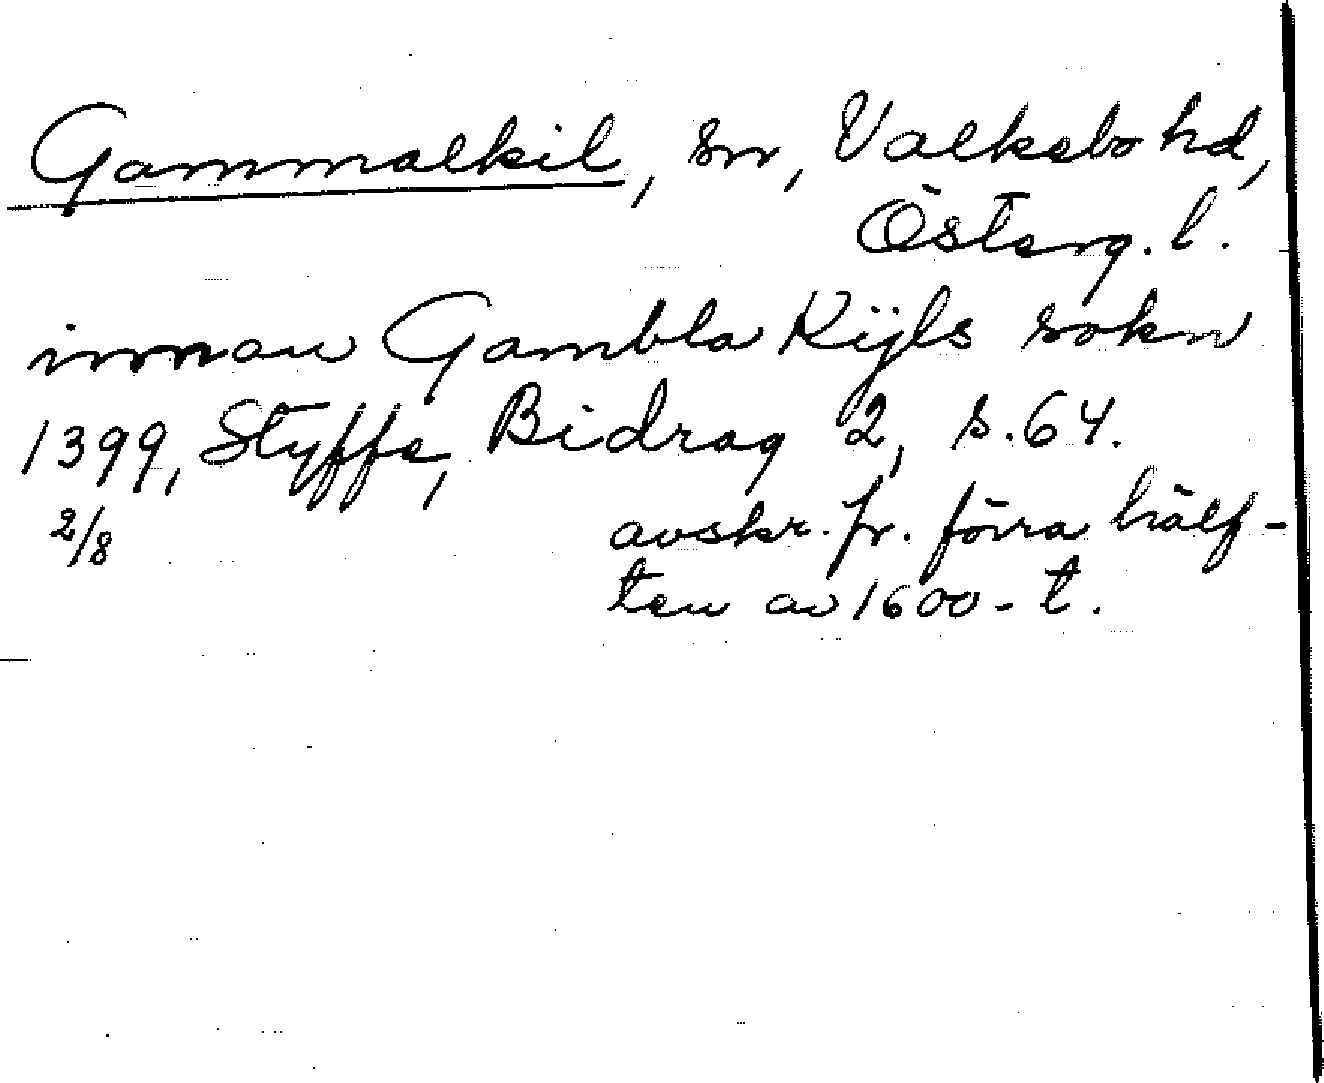 Gammalkil, sn, Valkebo hd,
Österg. l.
innan Gambla Kijls sokn
1399, Styffe, Bidrag 2, s. 64.
2/8
avskr. fr. förra hälf-
ten av 1600-t.